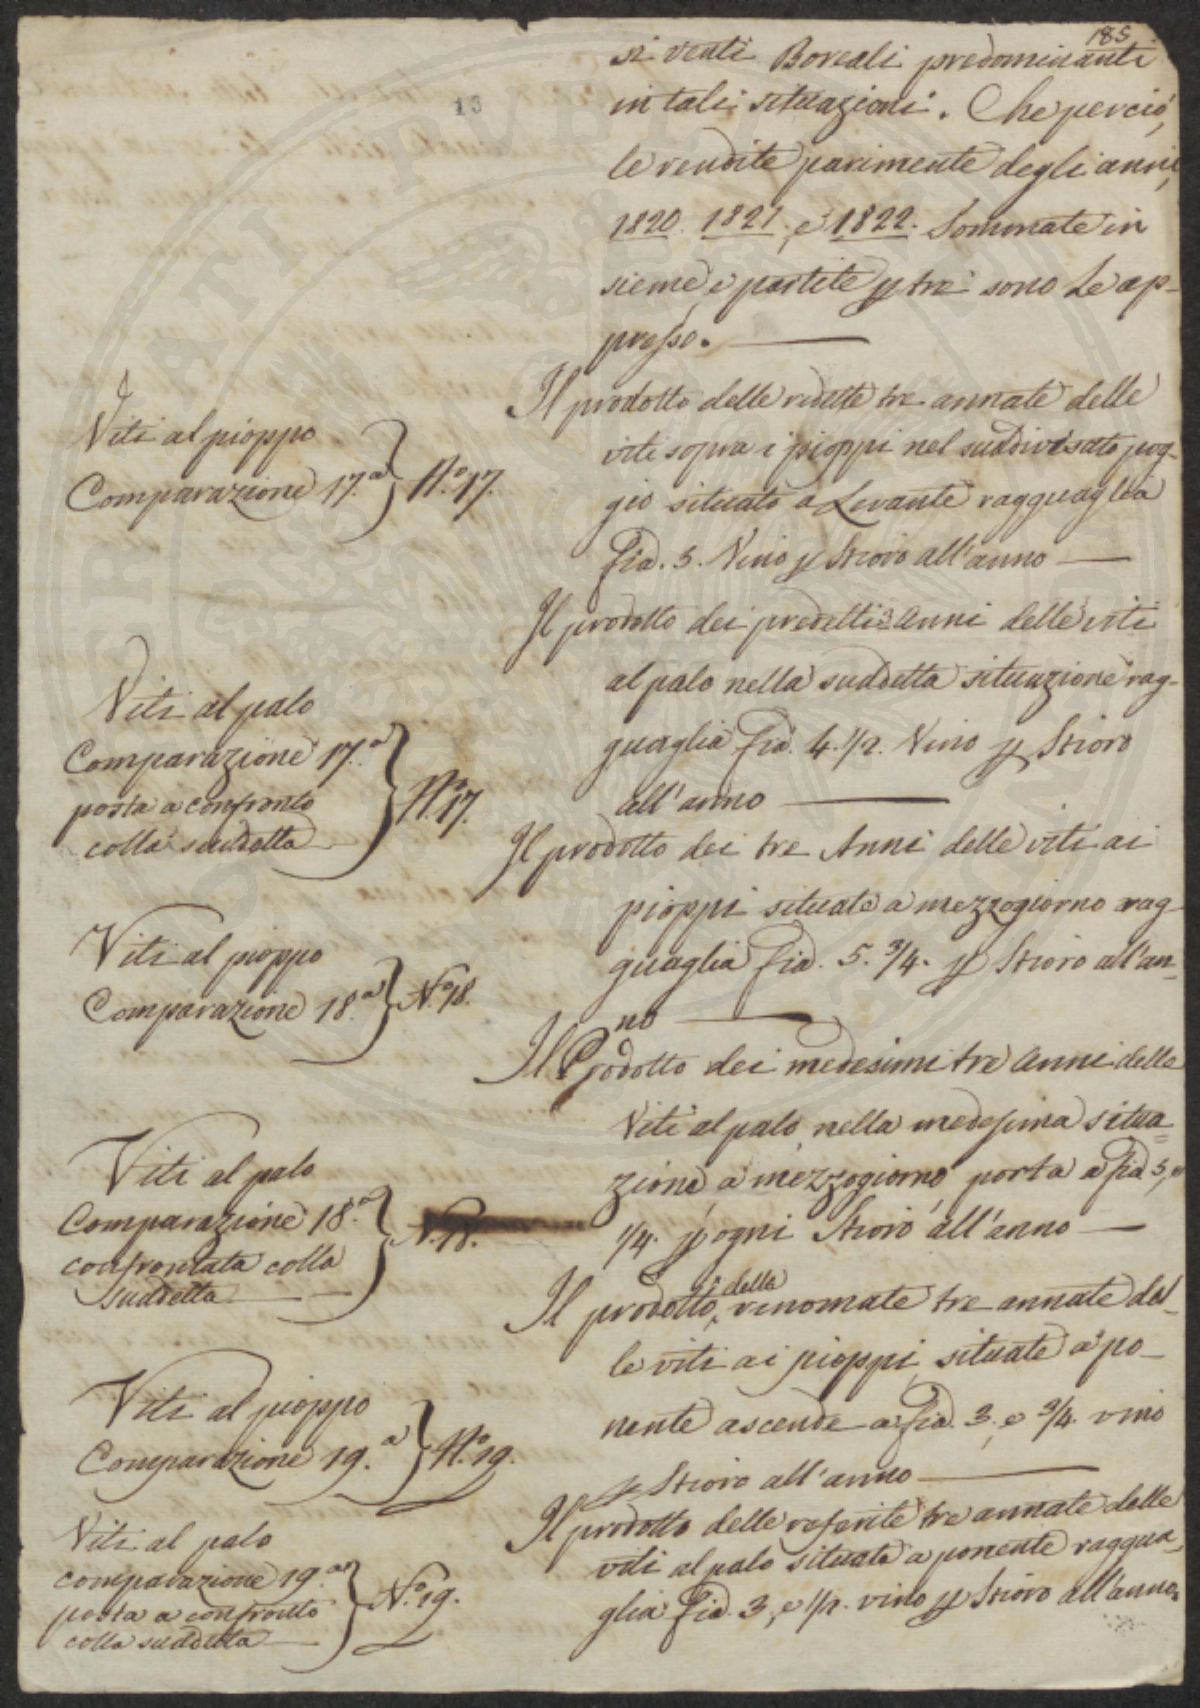 185
13
si venti Boreali predominanti
in tali situazioni. Che perciò,
le vendite parimente degli anni,
1820. 1821., e 1822. Sommate in
sieme, e partite p tre sono Le ap-
presso.
Viti al pioppo
Comparazione 17.a } N.o 17.
Il prodotto delle ridette tre annate delle
viti sopra i pioppi nel suddivisato pog-
gio situato a Levante ragguaglia
fia. 5. Vino p Stioro all'anno
Viti al palo
Comparazione 17.a
posta a confronto
colla suddetta } N.o 17.
Il prodotto dei predetti 3 anni delle viti
al palo nella suddetta situazione rag-
guaglia fia. 4. 1/2. Vino p Stioro
all'anno
Viti al pioppo
Comparazione 18.a } N.o 18.
Il prodotto dei tre Anni delle viti ai
pioppi situate a mezzogiorno rag-
guaglia fia. 5. 3/4. p Stioro all'an-
no
Viti al palo
Comparazione 18.a
confrontata colla
suddetta } N. 18.
Il Prodotto dei medesimi tre anni delle
Viti al palo nella medesima situa=
zione a mezzogiorno porta a fia 5, e
1/4. p ogni Stioro all'anno
Viti al pioppo
Comparazione 19.a } N.o 19.
Il prodotto, delle rinomate tre annate del-
le viti ai pioppi situate a po-
nente ascende a fia. 3. e 3/4. vino
p Stioro all'anno
Viti al palo
comparazione 19.a
posta a confronto
colla suddetta } N.o 19.
Il prodotto delle referite tre annate delle
viti al palo situate a ponente raggua-
glia fia. 3, e 1/2. vino p Stioro all'anno.